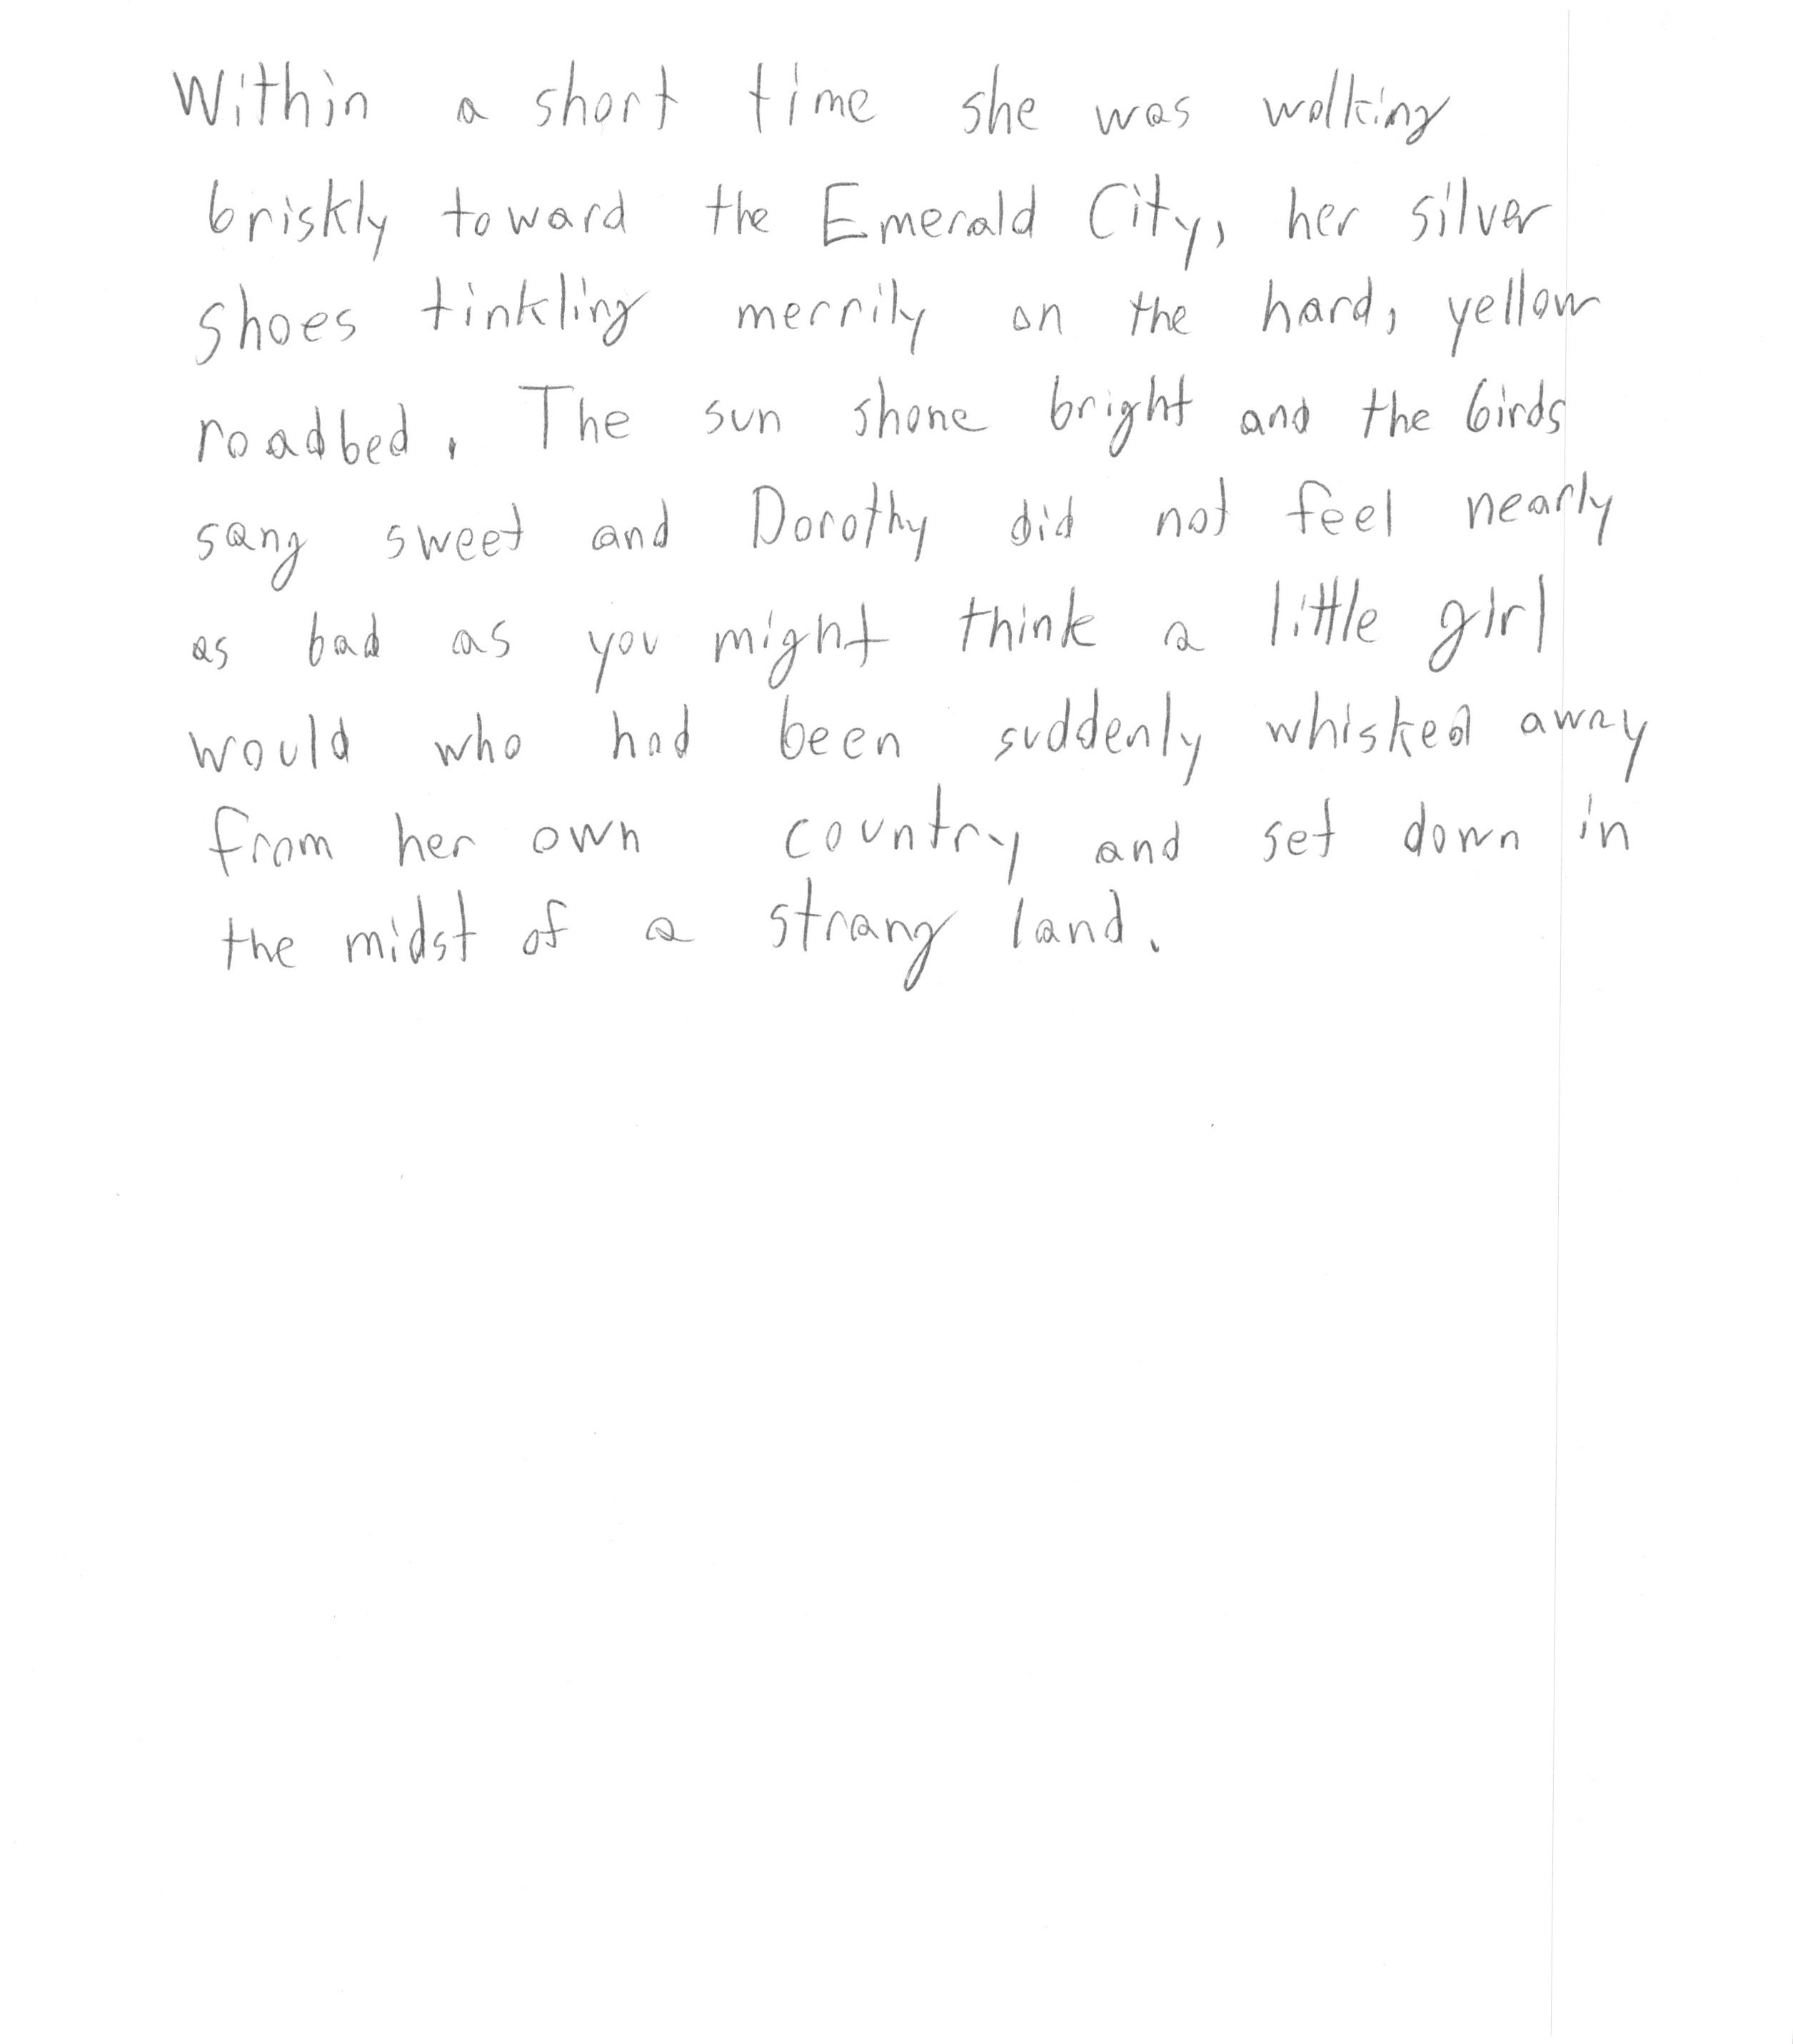 Within a short time she was walking
briskly toward the Emerald City, her silver
shoes tinkling merrily on the hard, yellow
roadbed. The sun shone bright and the birds
sang sweet and Dorothy did not feel nearly
as bad as you might think a little girl
would who had been suddenly whisked away
from her own country and set down in
the midst of a strang land.